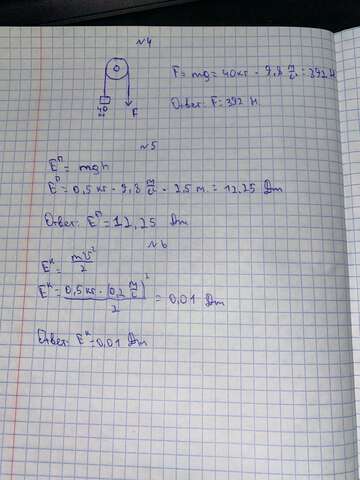 №4
F = mg = 40кг · 9,8 м/с = 392 Н
40 кг
F
Ответ: F = 392 Н
№5
Eᴨ = mgh
Eᴨ = 0,5 кг · 9,8 м/с · 2,5 м. = 12,25 Дж
Ответ: Eᴨ = 12,25 Дж
№6
Eᴷ = mv²/2
Eᴷ = 0,5 кг · (0,2 м/с)²/2 = 0,01 Дж
Ответ: Eᴷ = 0,01 Дж